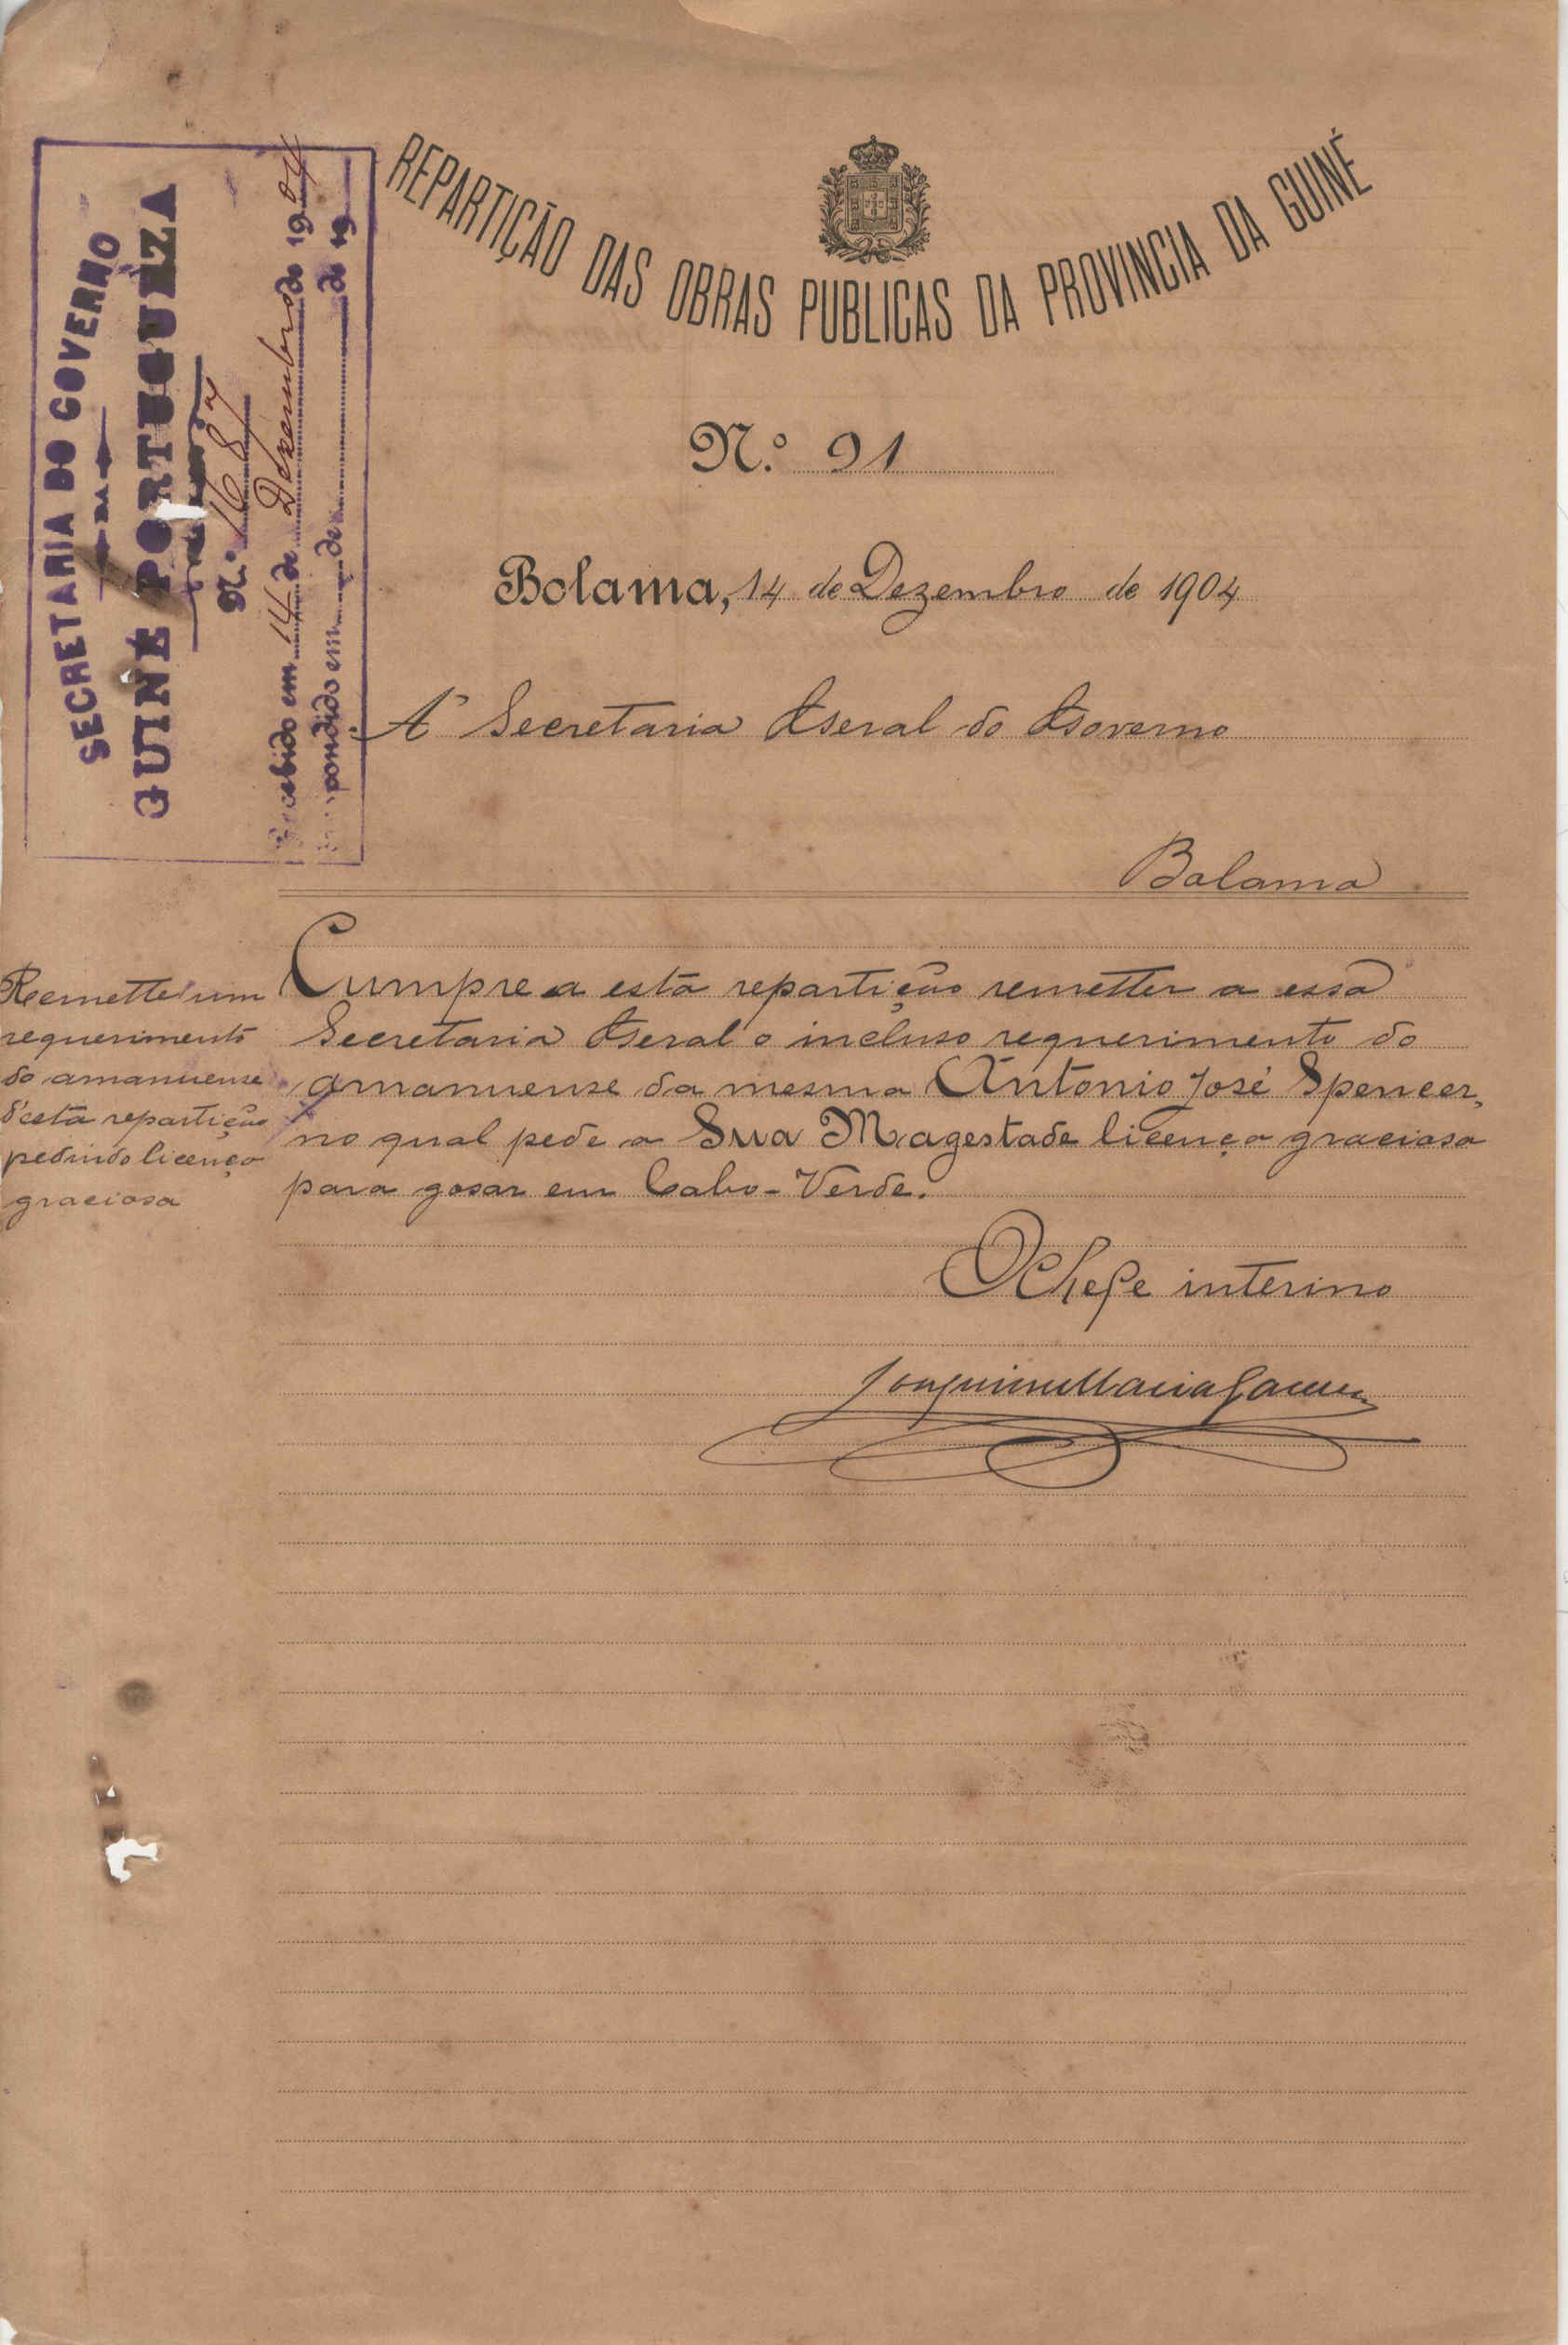 REPARTIÇÃO DAS OBRAS PUBLICAS DA PROVINCIA DA GUINÉ
SECRETARIA DO GOVERNO
DA
GUINÉ PORTUGUEZA
N.º 1687
Recebido em 14 de Dezembro de 1904
Respondido em de de 19
N.º 91
Bolama, 14 de Dezembro de 1904
A' Secretaria Geral do Governo
Bolama
Remette um
requerimento
do amanuense
d'esta repartição
pedindo licença
graciosa
Cumpre a esta repartição remetter a essa
Secretaria Geral o incluso requerimento do
amanuense da mesma Antonio José Spencer,
no qual pede a Sua Magestade licença graciosa
para gosar em Cabo-Verde.
O Chefe interino
Joaquim Maria